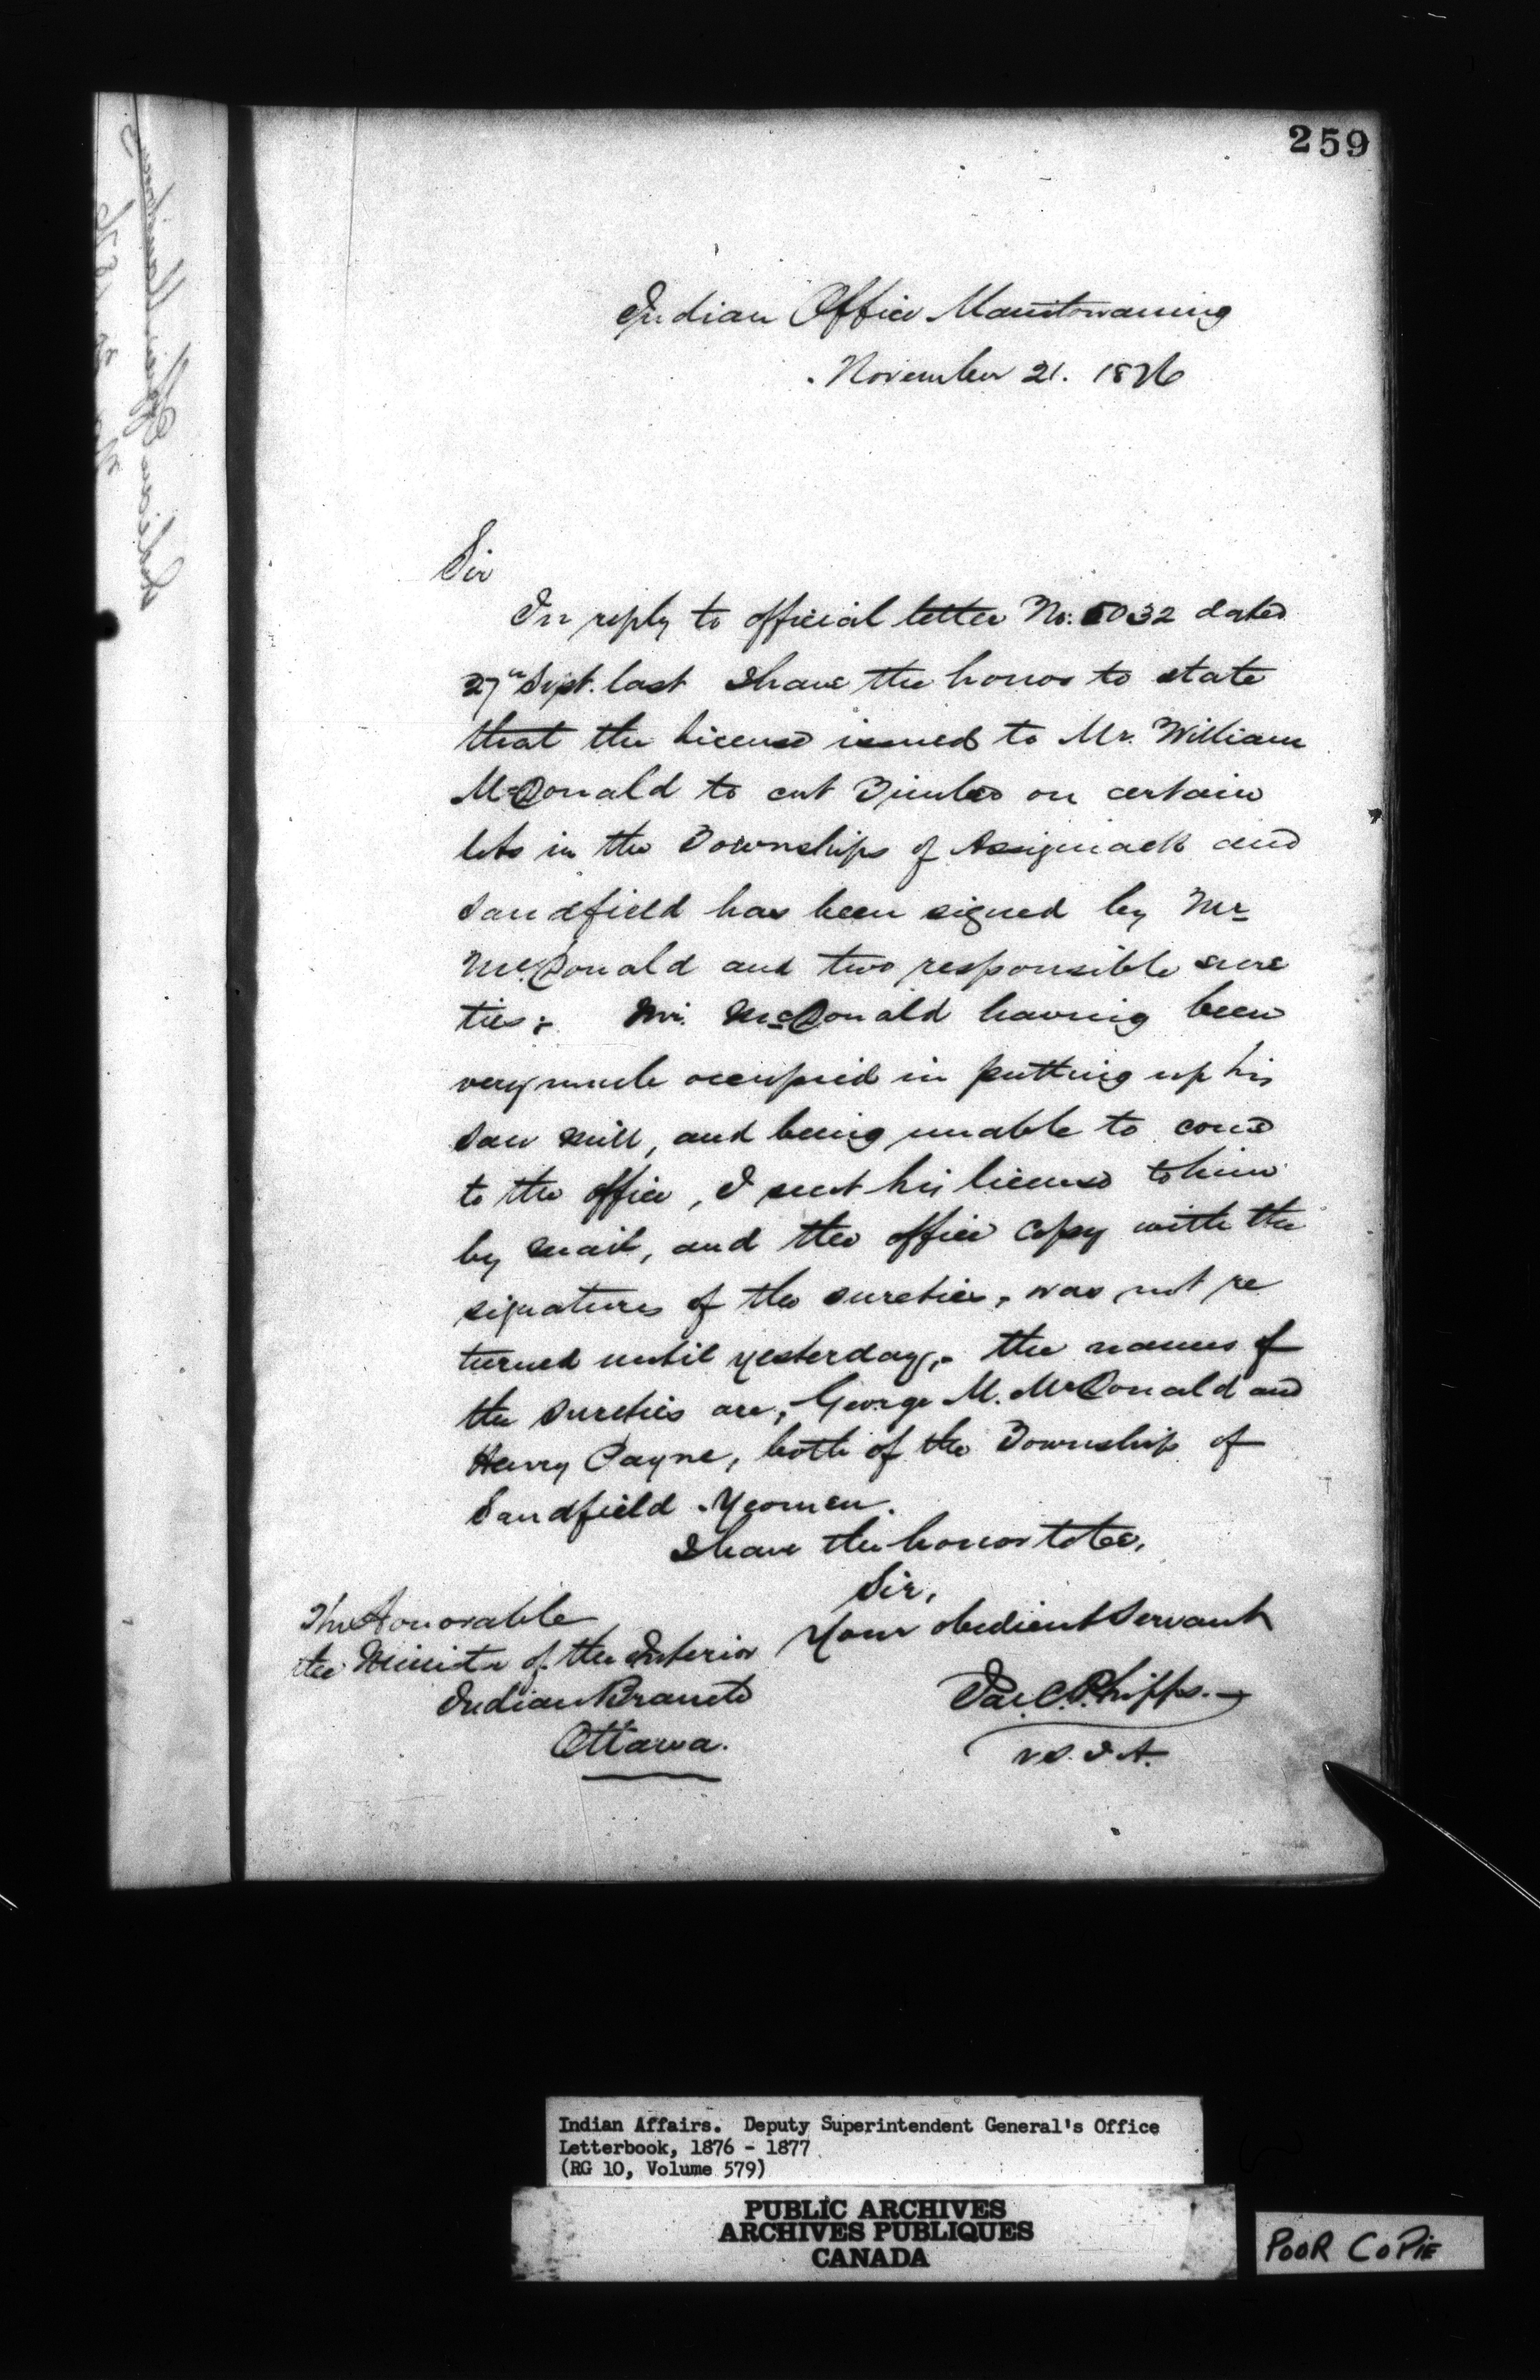 259
Indian Office Manitowaning
November 21. 1876
Sir
In reply to official letter No: 5032 dated
27th Sept. last I have the honor to state
that the License issued to Mr. William
McDonald to cut Timber on certain
lots in the Townships of Assiginack and
Sandfield has been signed by Mr
McDonald and two responsible sure
ties; Mr. McDonald having been
very much occupied in putting up his
Saw Mill, and being unable to come
to the office, I sent his license to him
by mail, and the office copy with the
signatures of the sureties, was not re
turned until yesterday,- the names of
the Sureties are, George M. McDonald and
Henry Payne, both of the Township of
Sandfield. Yeomen.
I have the honor to be,
Sir,
Your obedient Servant
The Honorable
the Minister of the Interior
Indian Branch
Ottawa.
Jas. C. Phipps.
V.S.I.A.
Indian Affairs. Deputy Superintendent General's Office
Letterbook, 1876 - 1877
(RG 10, Volume 579)
PUBLIC ARCHIVES
ARCHIVES PUBLIQUES
CANADA
POOR COPIE